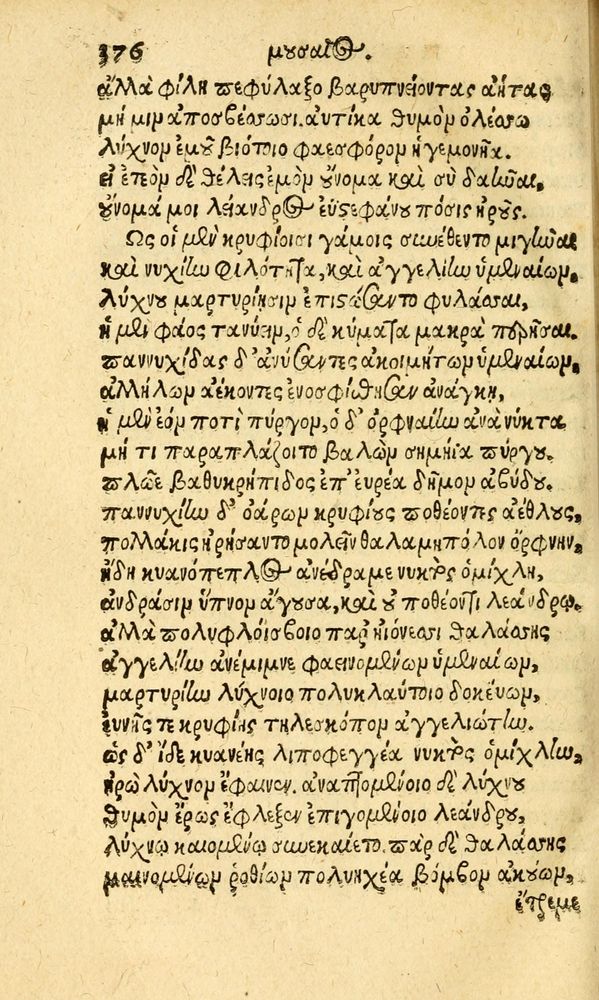 376 μουσαῖος.
ἀλλὰ φίλη πεφύλαξο βαρυπνείοντας ἀήτας,
μή μιν ἀποσβέσωσι. αὐτίκα θυμὸν ὀλέσσω
λύχνον ἐμοῦ βιότοιο φαεσφόρον ἡγεμονῆα.
εἰ ἐτεὸν δὲ θέλεις ἐμὸν οὔνομα καὶ σὺ δαῆναι,
οὔνομά μοι λείανδρος ἐϋστεφάνου πόσις ἡροῦς.
Ως οἱ μὲν κρυφίοισι γάμοις συνέθεντο μιγῆναι
καὶ νυχίην φιλότητα, καὶ ἀγγελίην ὑμεναίων,
λύχνου μαρτυρίησιν ἐπιστώσαντο φυλάσσειν,
ἡ μὲν φάος τανύειν, ὁ δὲ κύματα μακρὰ περῆσαι.
παννυχίδας δ' ἀνύσαντες ἀκοιμήτων ὑμεναίων,
ἀλλήλων ἀέκοντες ἐνοσφίσθησαν ἀνάγκη,
ἡ μὲν ἑὸν ποτὶ πύργον, ὁ δ' ὀρφναίην ἀνὰ νύκτα
μή τι παραπλάζοιτο βαλὼν σημήϊα πύργου.
πλῶε βαθυκρήπιδος ἐπ' εὐρέα δῆμον ἀβύδου.
παννυχίων δ' ὀάρων κρυφίους ποθέοντες ἀέθλους,
πολλάκις ἠρήσαντο μολεῖν θαλαμηπόλον ὄρφνην,
ἤδη κυανόπεπλος ἀνέδραμε νυκτὸς ὁμίχλη,
ἀνδράσιν ὕπνον ἄγουσα, καὶ οὐ ποθέοντι λεάνδρῳ.
ἀλλὰ πολυφλοίσβοιο παρ' ἠϊόνεσσι θαλάσσης
ἀγγελίην ἀνέμιμνε φαεινομένων ὑμεναίων,
μαρτυρίην λύχνοιο πολυκλαύτοιο δοκεύων,
εὐνῆς τε κρυφίης τηλεσκόπον ἀγγελιώτην.
ὡς δ' ἴδε κυανέης λιποφεγγέα νυκτὸς ὁμίχλην,
ἡρὼ λύχνον ἔφαινεν. ἀναπτομένοιο δὲ λύχνου
θυμὸν ἔρως ἔφλεξεν ἐπιγομένοιο λεάνδρου,
λύχνῳ καιομένῳ συνεκαίετο. πὰρ δὲ θαλάσσης
μαινομένων ῥοθίων πολυηχέα βόμβον ἀκούων,
ἔτρεμε